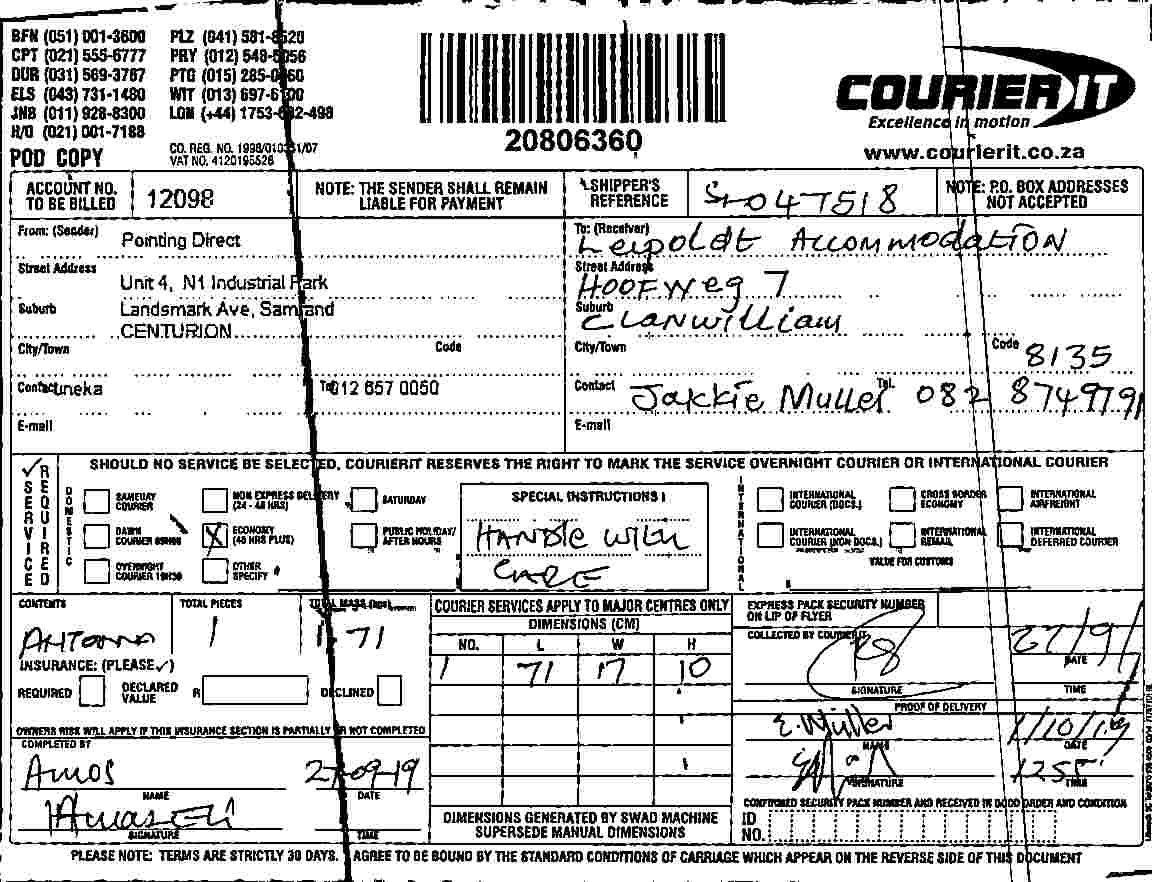 BFN (051) 001-3600 PLZ (041) 581-
CPT (021) 555-6777 PRY (012) 548-
DUR (031) 569-3767 PTG (015) 285-
ELS (043) 731-1480 WIT (013) 697-
JNB (011) 928-8300 LON (+44) 1753-
H/O (021) 001-7188
POD COPY
CO. REG. NO.
VAT NO.
20806360
COURIER IT
Excellence in motion
www.courierit.co.za
ACCOUNT NO. TO BE BILLED 12098
NOTE: THE SENDER SHALL REMAIN LIABLE FOR PAYMENT
SHIPPER'S REFERENCE
NOTE: P.O. BOX ADDRESSES NOT ACCEPTED
From: (Sender) Pointing Direct
Street Address Unit 4, N1 Industrial Park
Suburb Landsmark Ave, Samrand
CENTURION
City/Town Code
Contact uneka Tel 012 657 0050
E-mail
To: (Receiver) Leipoldt Accommodation
Street Address Hoofweg 7
Suburb Clanwilliam
City/Town Code 8135
Contact Jakkie Muller Tel. 082 8749791
E-mail
SHOULD NO SERVICE BE SELECTED, COURIERIT RESERVES THE RIGHT TO MARK THE SERVICE OVERNIGHT COURIER OR INTERNATIONAL COURIER
✓ SERVICE REQUIRED
DOMESTIC
SAMEDAY COURIER
NON EXPRESS DELIVERY (24 - 48 HRS)
SATURDAY
DAWN COURIER
X ECONOMY (48 HRS PLUS)
PUBLIC HOLIDAY/ AFTER HOURS
OVERNIGHT COURIER 10H30
OTHER SPECIFY
SPECIAL INSTRUCTIONS
Handle with
care
INTERNATIONAL
INTERNATIONAL COURIER (DOCS.)
CROSS BORDER ECONOMY
INTERNATIONAL AIRFREIGHT
INTERNATIONAL COURIER (NON DOCS.)
INTERNATIONAL REMAIL
INTERNATIONAL DEFERRED COURIER
VALUE FOR CUSTOMS
CONTENTS Antenna
TOTAL PIECES 1
TOTAL MASS 71
INSURANCE: (PLEASE ✓)
REQUIRED DECLARED VALUE R DECLINED
OWNERS RISK WILL APPLY IF THIS INSURANCE SECTION IS PARTIALLY OR NOT COMPLETED
COMPLETED BY
Amos 27-09-19
NAME DATE
SIGNATURE TIME
COURIER SERVICES APPLY TO MAJOR CENTRES ONLY
DIMENSIONS (CM)
NO. L W H
1 71 17 10
DIMENSIONS GENERATED BY SWAD MACHINE SUPERSEDE MANUAL DIMENSIONS
EXPRESS PACK SECURITY NUMBER ON LIP OF FLYER
COLLECTED BY COURIERIT
27/9/
DATE
SIGNATURE TIME
PROOF OF DELIVERY
E. Müller 1/10/19
NAME DATE
1255
SIGNATURE TIME
CONFIRMED SECURITY PACK NUMBER AND RECEIVED IN GOOD ORDER AND CONDITION
ID NO.
PLEASE NOTE: TERMS ARE STRICTLY 30 DAYS. I AGREE TO BE BOUND BY THE STANDARD CONDITIONS OF CARRIAGE WHICH APPEAR ON THE REVERSE SIDE OF THIS DOCUMENT